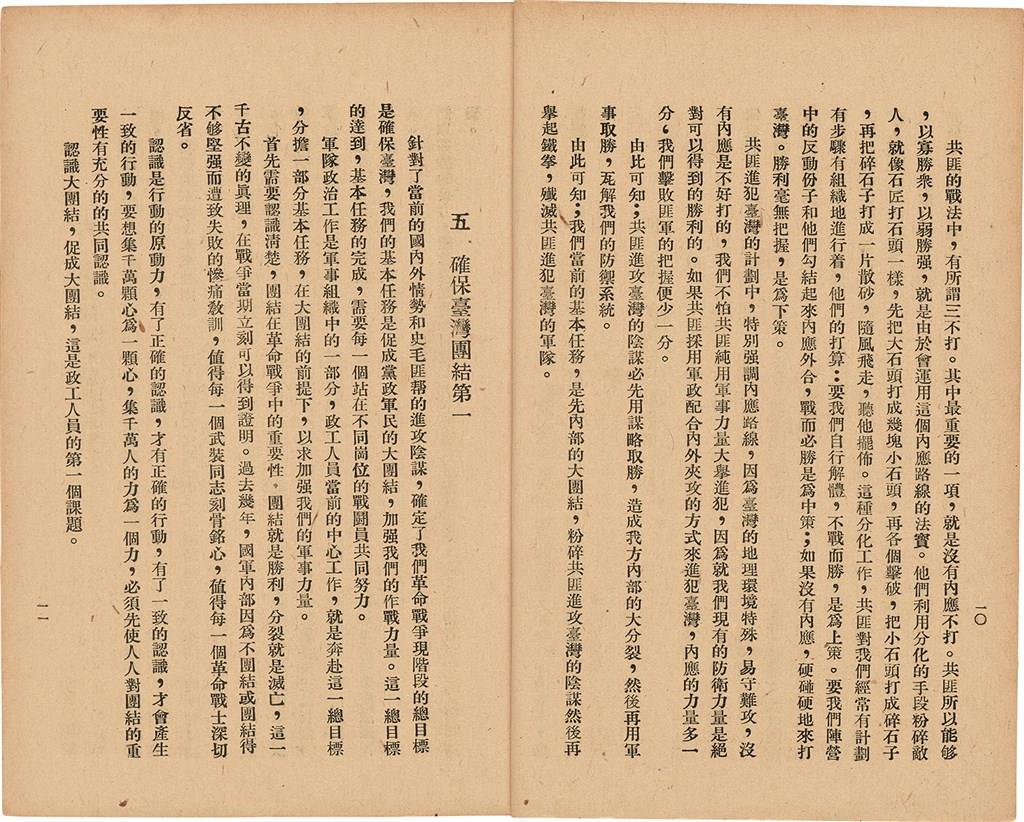 共匪的戰法中，有所謂三不打。其中最重要的一項，就是沒有內應不打。共匪所以能够
，以寡勝衆，以弱勝强，就是由於會運用這個內應路線的法寳。他們利用分化的手段粉碎敵
人，就像石匠打石頭一樣，先把大石頭打成幾塊小石頭，再各個擊破，把小石頭打成碎石子
，再把碎石子打成一片散砂，隨風飛走，聽他擺佈。這種分化工作，共匪對我們經常有計劃
有步驟有組織地進行着，他們的打算：要我們自行解體，不戰而勝，是爲上策。要我們陣營
中的反動份子和他們勾結起來內應外合，戰而必勝是爲中策；如果沒有內應，硬碰硬地來打
臺灣。勝利毫無把握，是爲下策。
共匪進犯臺灣的計劃中，特別强調內應路線，因爲臺灣的地理環境特殊，易守難攻，沒
有內應是不好打的，我們不怕共匪純用軍事力量大擧進犯，因爲就我們現有的防衛力量是絕
對可以得到的勝利的。如果共匪採用軍政配合內外夾攻的方式來進犯臺灣，內應的力量多一
分，我們擊敗匪軍的把握便少一分。
由此可知；共匪進攻臺灣的陰謀必先用謀略取勝，造成我方內部的大分裂，然後再用軍
事取勝，瓦解我們的防禦系統。
由此可知；我們當前的基本任務，是先內部的大團結，粉碎共匪進攻臺灣的陰謀然後再
擧起鐵拳，殲滅共匪進犯臺灣的軍隊。
一〇
五　確保臺灣團結第一
針對了當前的國內外情勢和史毛匪幫的進攻陰謀，確定了我們革命戰爭現階段的總目標
是確保臺灣，我們的基本任務是促成黨政軍民的大團結，加强我們的作戰力量。這一總目標
的達到，基本任務的完成，需要每一個站在不同崗位的戰鬪員共同努力。
軍隊政治工作是軍事組織中的一部分，政工人員當前的中心工作，就是奔赴這一總目標
，分擔一部分基本任務，在大團結的前提下，以求加强我們的軍事力量。
首先需要認識淸楚，團結在革命戰爭中的重要性，團結就是勝利，分裂就是滅亡，這一
千古不變的眞理，在戰爭當期立刻可以得到證明。過去幾年，國軍內部因爲不團結或團結得
不够堅强而遭致失敗的慘痛敎訓，値得每一個武裝同志刻骨銘心，値得每一個革命戰士深切
反省。
認識是行動的原動力，有了正確的認識，才有正確的行動，有了一致的認識，才會產生
一致的行動，要想集千萬顆心爲一顆心，集千萬人的力爲一個力，必須先使人人對團結的重
要性有充分的的共同認識。
認識大團結，促成大團結，這是政工人員的第一個課題。
一一